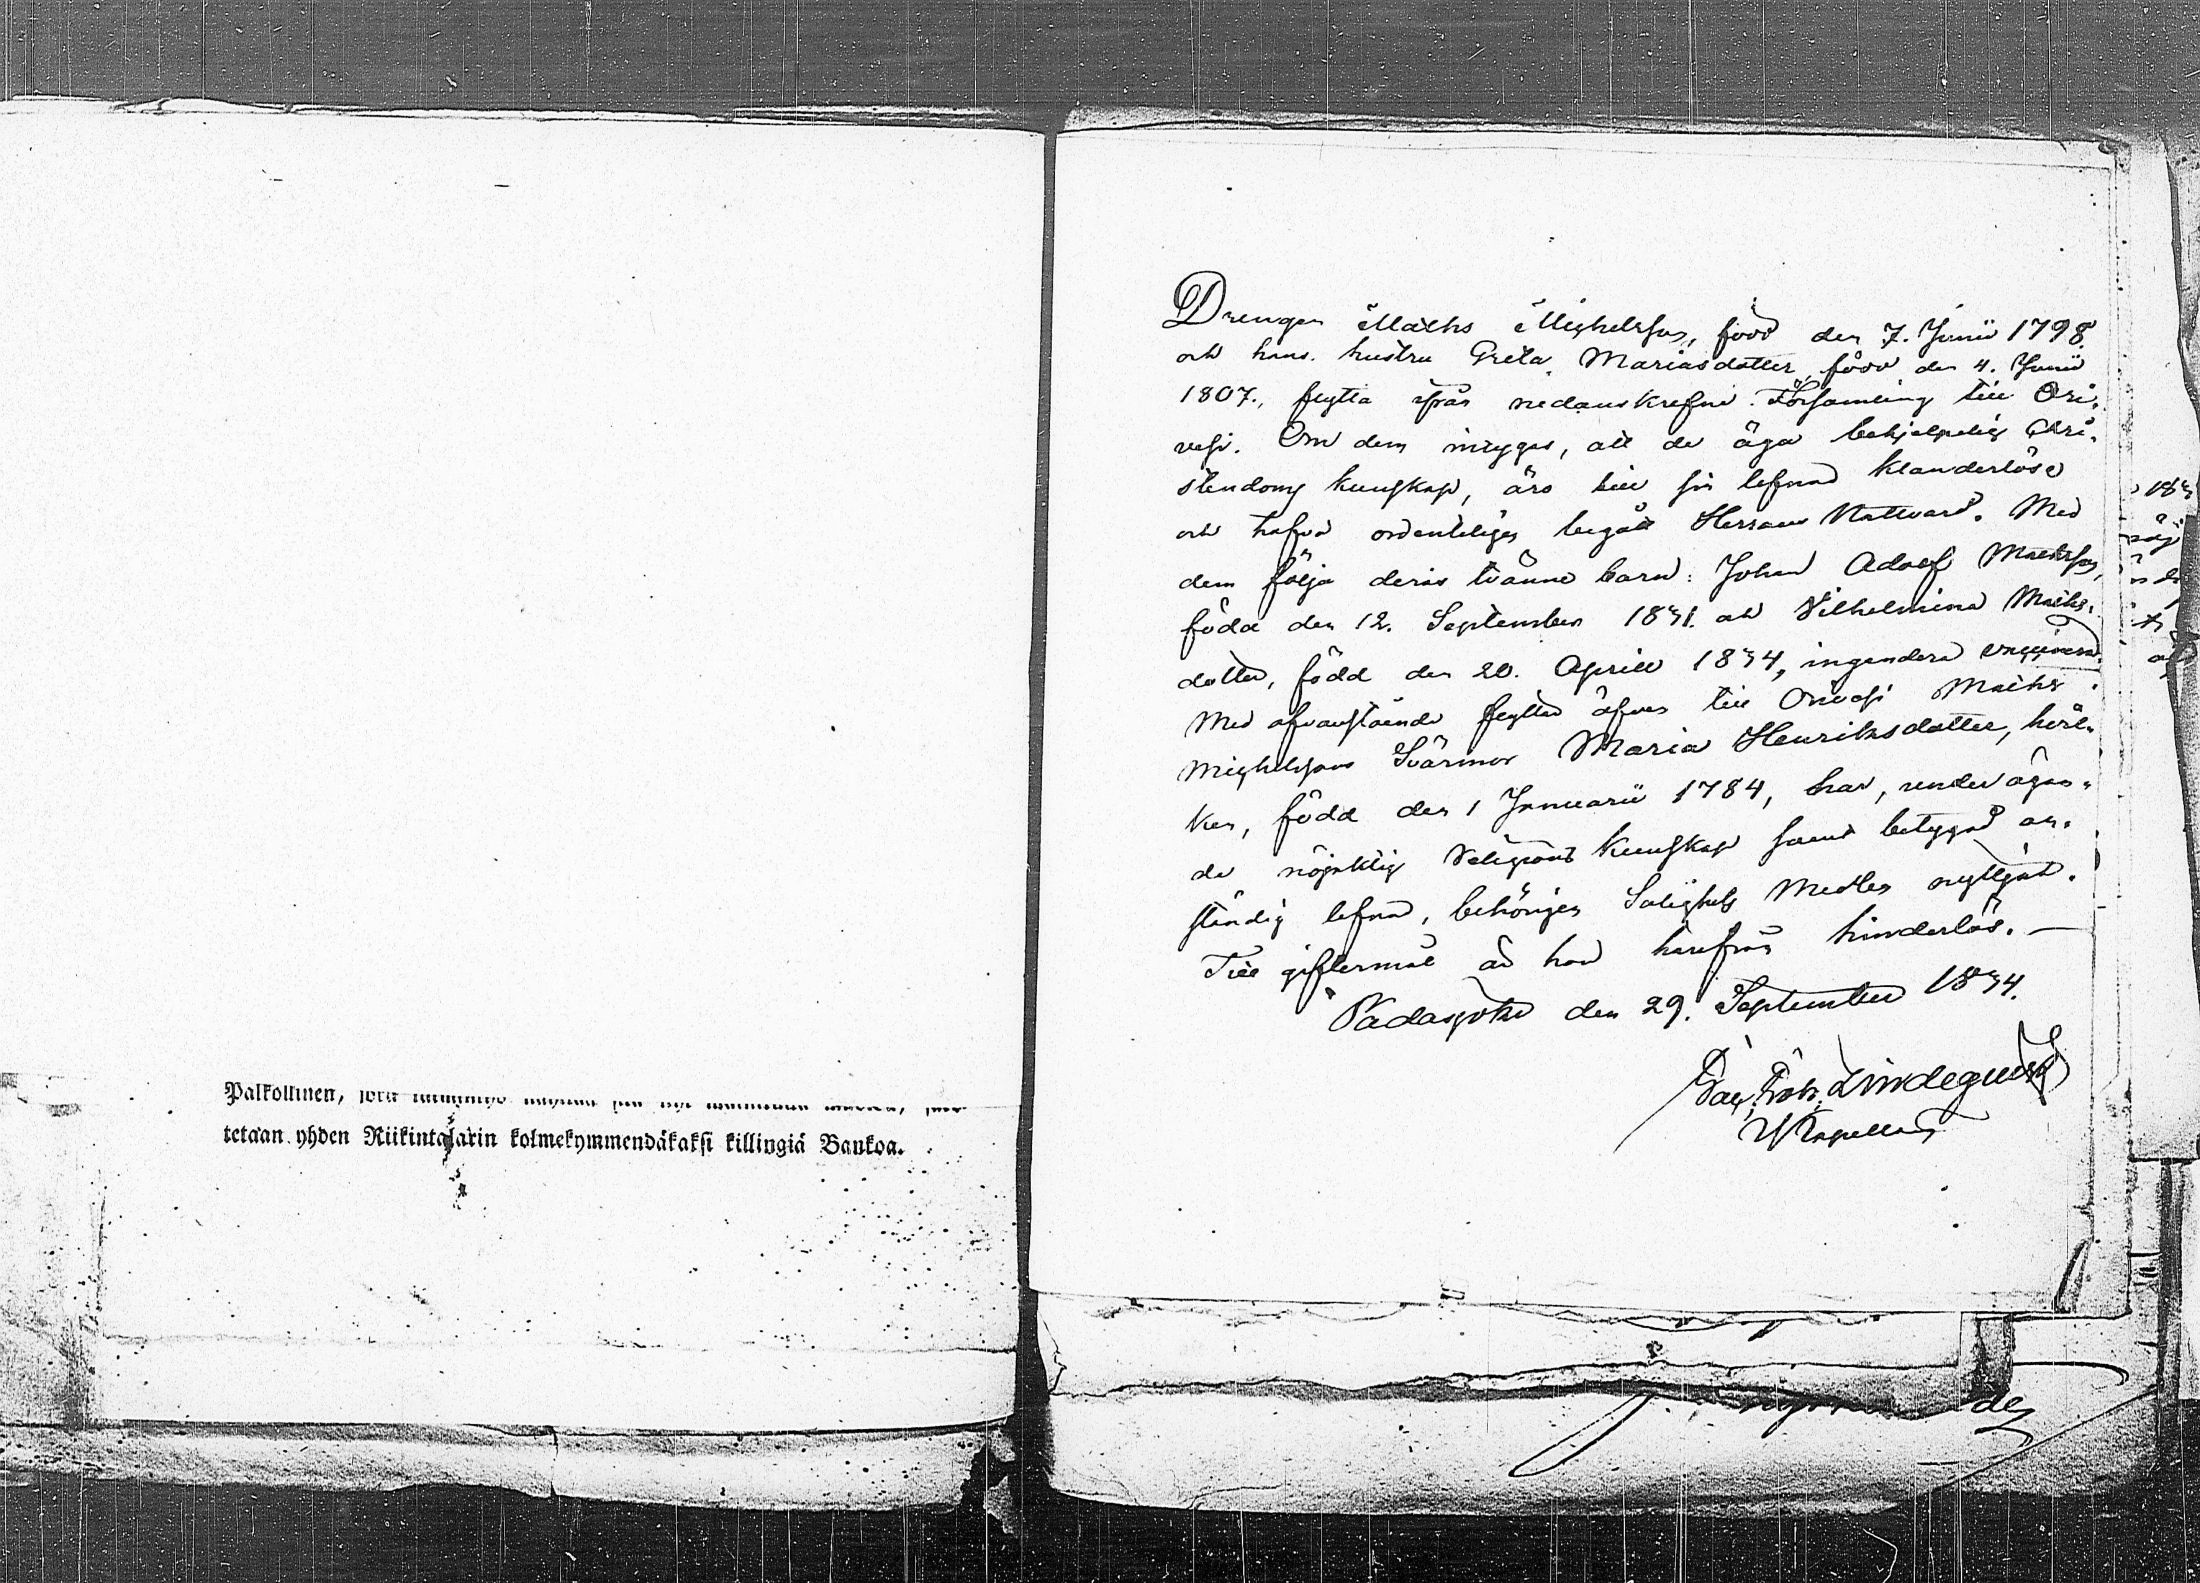 Palkollinen,
tetaan yhden Riikintalarin kolmekymmendäkaksi killingiä Bankoa.
Drengen Maths Michelsson, född den 7. Junii 1798
och hans hustru Greta Mariasdotter, född den 4. Junii
1807., flytta ifrån nedanskrefne Församling till Ori-
vesi. Om dem intygas, att de äga behjelpelig Chri-
stendoms kunskap, äro till sin lefnad klanderlöse
och hafva ordenteligen begått Herrans Nattvard. Med
dem följa deras tvänne barn: Johan Adolf Mathsson,
född den 12. September 1831. och Vilhelmina Maths-
dotter, född den 20. Aprill 1834, ingendera vaccinerad.
Med ofvanstående flyttar äfven till Orivesi Maths
Michelssons Svärmor Maria Henriksdotter,
född den 1 Januarii 1784, har,
de nöjaktig Religions kunskap samt betygad an-
ständig lefnad, behörigen Salighets Medlen nyttjat.
Till giftermål är hon härifrån hinderlös. —
Padasjoki den 29. September 1834.
Lindequist
VKapellan